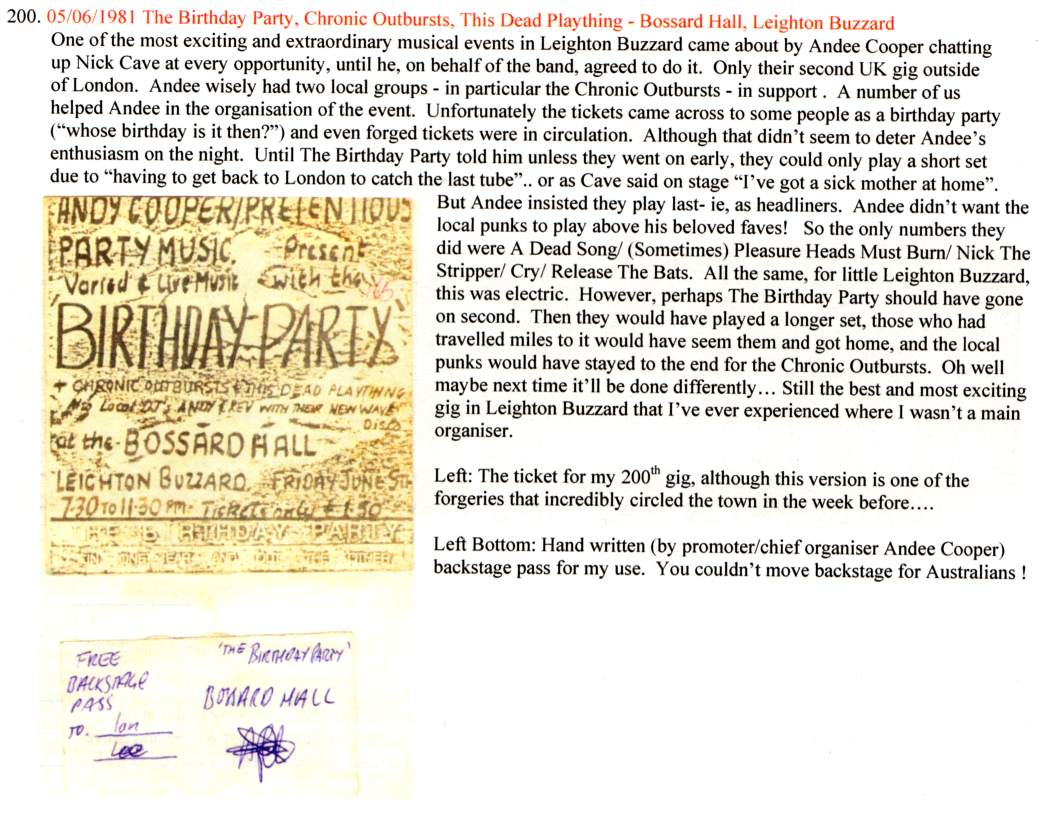 200. 05/06/1981 The Birthday Party, Chronic Outbursts, This Dead Plaything - Bossard Hall, Leighton Buzzard
One of the most exciting and extraordinary musical events in Leighton Buzzard came about by Andee Cooper chatting
up Nick Cave at every opportunity, until he, on behalf of the band, agreed to do it. Only their second UK gig outside
of London. Andee wisely had two local groups - in particular the Chronic Outbursts - in support . A number of us
helped Andee in the organisation of the event. Unfortunately the tickets came across to some people as a birthday party
(“whose birthday is it then?”) and even forged tickets were in circulation. Although that didn’t seem to deter Andee’s
enthusiasm on the night. Until The Birthday Party told him unless they went on early, they could only play a short set
due to “having to get back to London to catch the last tube”.. or as Cave said on stage “I’ve got a sick mother at home”.
But Andee insisted they play last- ie, as headliners. Andee didn’t want the
local punks to play above his beloved faves! So the only numbers they
did were A Dead Song/ (Sometimes) Pleasure Heads Must Burn/ Nick The
Stripper/ Cry/ Release The Bats. All the same, for little Leighton Buzzard,
this was electric. However, perhaps The Birthday Party should have gone
on second. Then they would have played a longer set, those who had
travelled miles to it would have seem them and got home, and the local
punks would have stayed to the end for the Chronic Outbursts. Oh well
maybe next time it’ll be done differently… Still the best and most exciting
gig in Leighton Buzzard that I’ve ever experienced where I wasn’t a main
organiser.
Left: The ticket for my 200th gig, although this version is one of the
forgeries that incredibly circled the town in the week before….
Left Bottom: Hand written (by promoter/chief organiser Andee Cooper)
backstage pass for my use. You couldn’t move backstage for Australians !
ANDY COOPER/PRETENTIOUS
PARTY MUSIC. Present
Varied & Live Music with the
BIRTHDAY PARTY
+ CHRONIC OUTBURSTS & THIS DEAD PLAYTHING
Local DJ's ANDY & KEV WITH THEIR NEW WAVE
DISCO
at the BOSSARD HALL
LEIGHTON BUZZARD. FRIDAY JUNE 5TH
7-30 TO 11-30 PM. Tickets only £1.50
THE BIRTHDAY PARTY
IN ONE YEAR AND OUT THE OTHER
FREE
BACKSTAGE
PASS
TO. Ian
Lee
'THE BIRTHDAY PARTY'
BOSSARD HALL